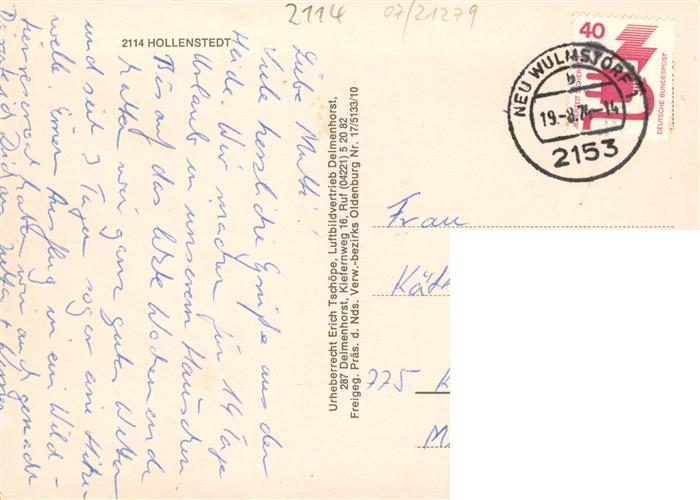 2114
07/21279
2114 HOLLENSTEDT
40
JEDERZEIT SICHERHEIT
DEUTSCHE BUNDESPOST
NEU WULMSTORF 1
b
19.-8.74-14
2153
Liebe Mutti!
Viele herzliche Grüße aus der
Heide. Wir machen für 14 Tage
Urlaub in unserem Häuschen.
Bis auf das letzte Wochenende
hatten wir ganz gutes Wetter
und seit 3 Tagen sogar eine Hitze-
welle. Einen Ausflug in ein Wild-
haben wir auch gemacht
Urheberrecht Erich Tschöpe, Luftbildvertrieb Delmenhorst,
287 Delmenhorst, Kiefernweg 16, Ruf (04221) 5 20 82
Freigeg. Präs. d. Nds. Verw.-bezirks Oldenburg Nr. 17/5133/10
Frau
Kät
775